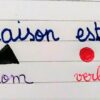 aison est
nom verb